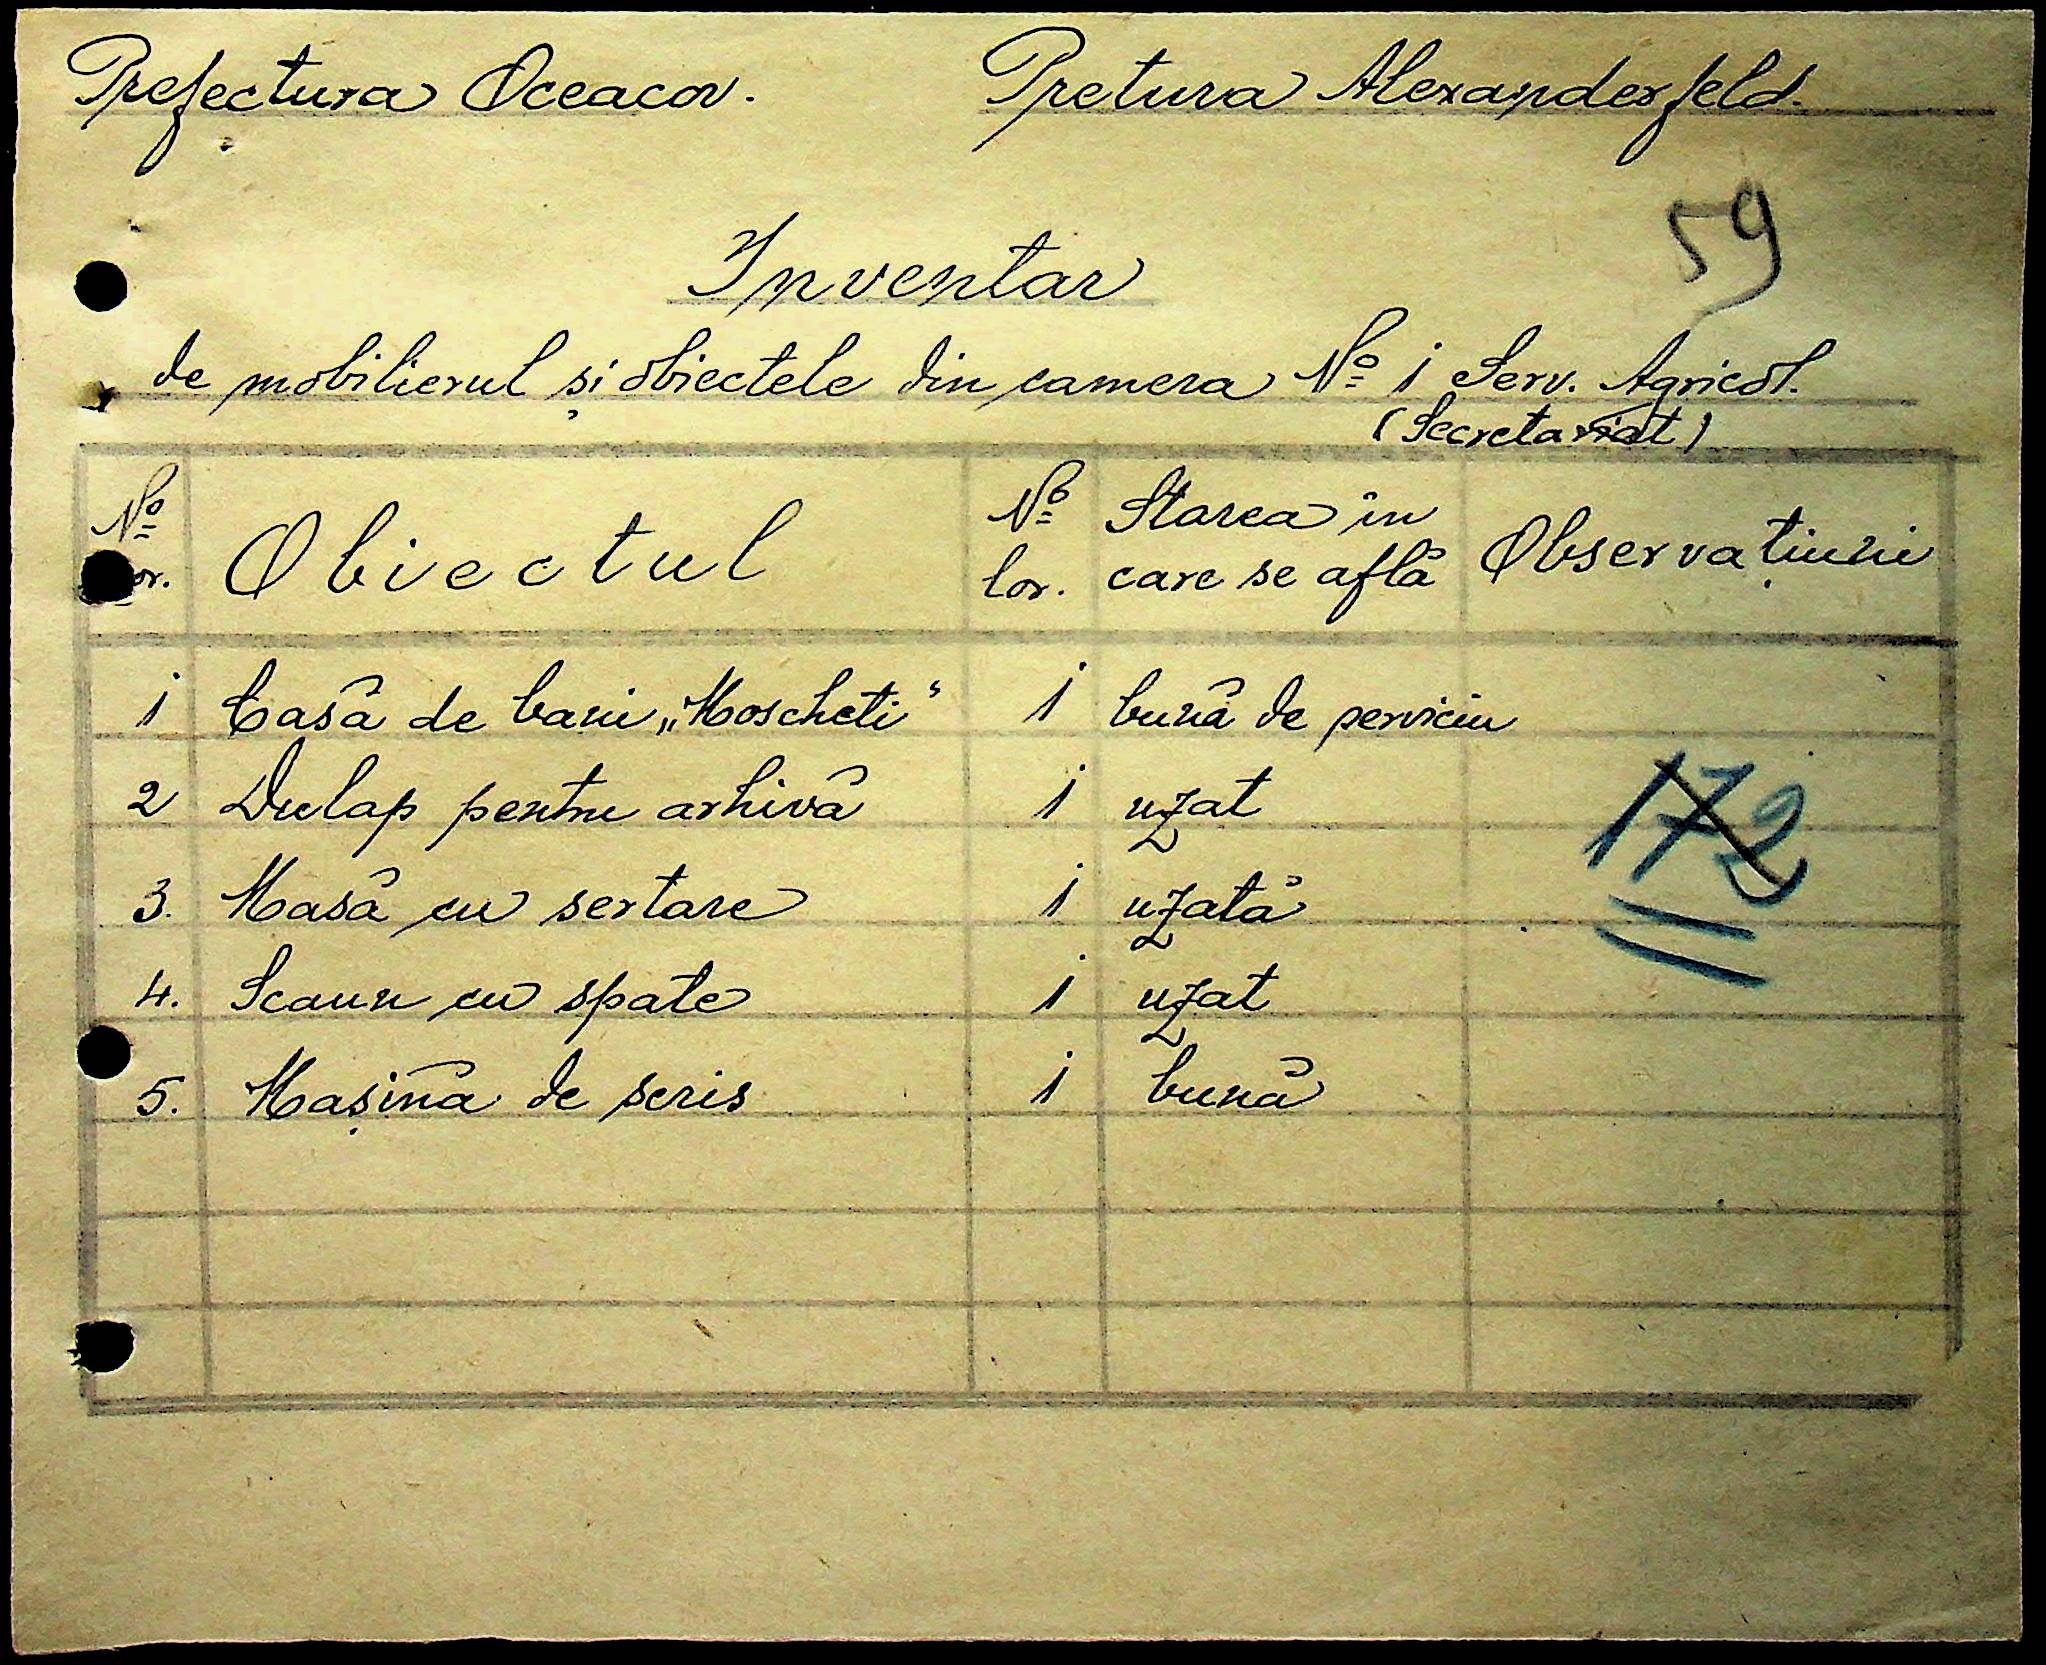 Prefectura Oceacov. Pretura Alexanderfeld.
59
Inventar
de mobilierul și obiectele din camera No 1 Serv. Agricol.
(Secretariat)
No or. Obiectul No lor. Starea în care se află Observațiuni
1 Casă de bani „Moscheti" 1 bună de serviciu
2 Dulap pentru arhivă 1 uzat
172
3. Masă cu sertare 1 uzată
4. Scaun cu spate 1 uzat
5. Mașină de scris 1 bună